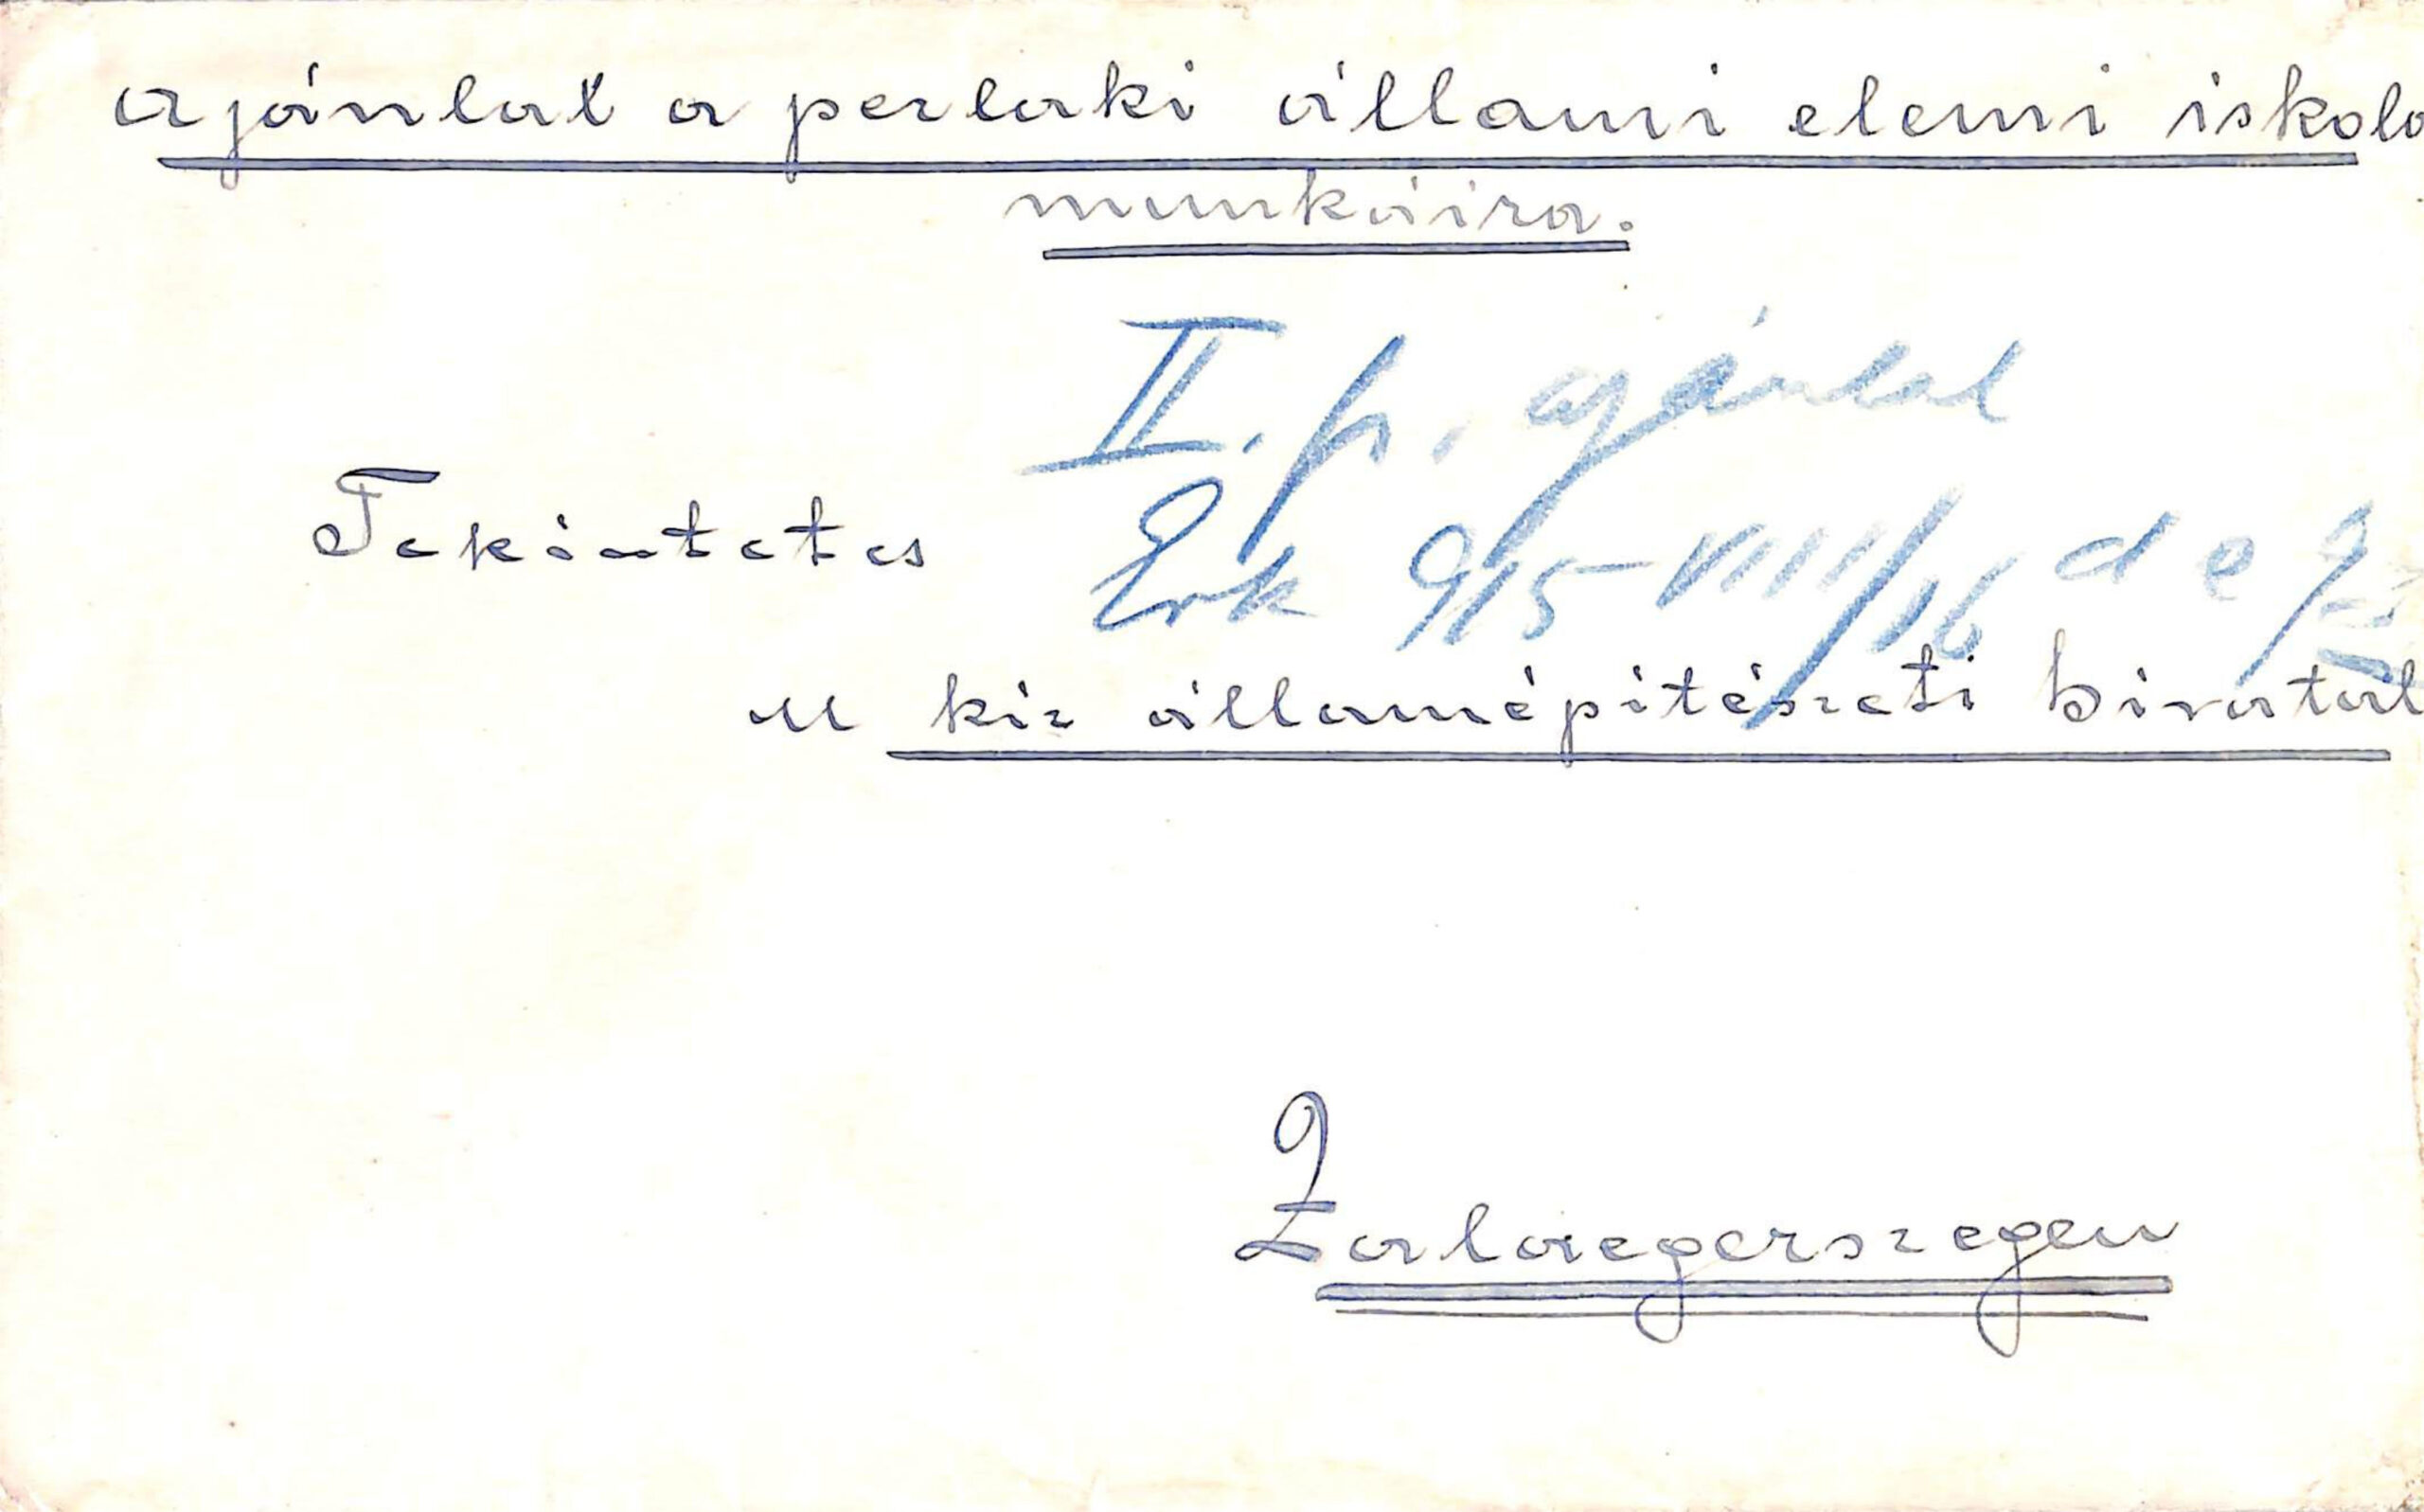 ajánlat a perlaki állami elemi iskola
munkáira.
II. p. ajánlat
Tekintetes
Érk 915-VIII/16 d e 9
M kir államépitészeti hivatal
Zalaegerszegen